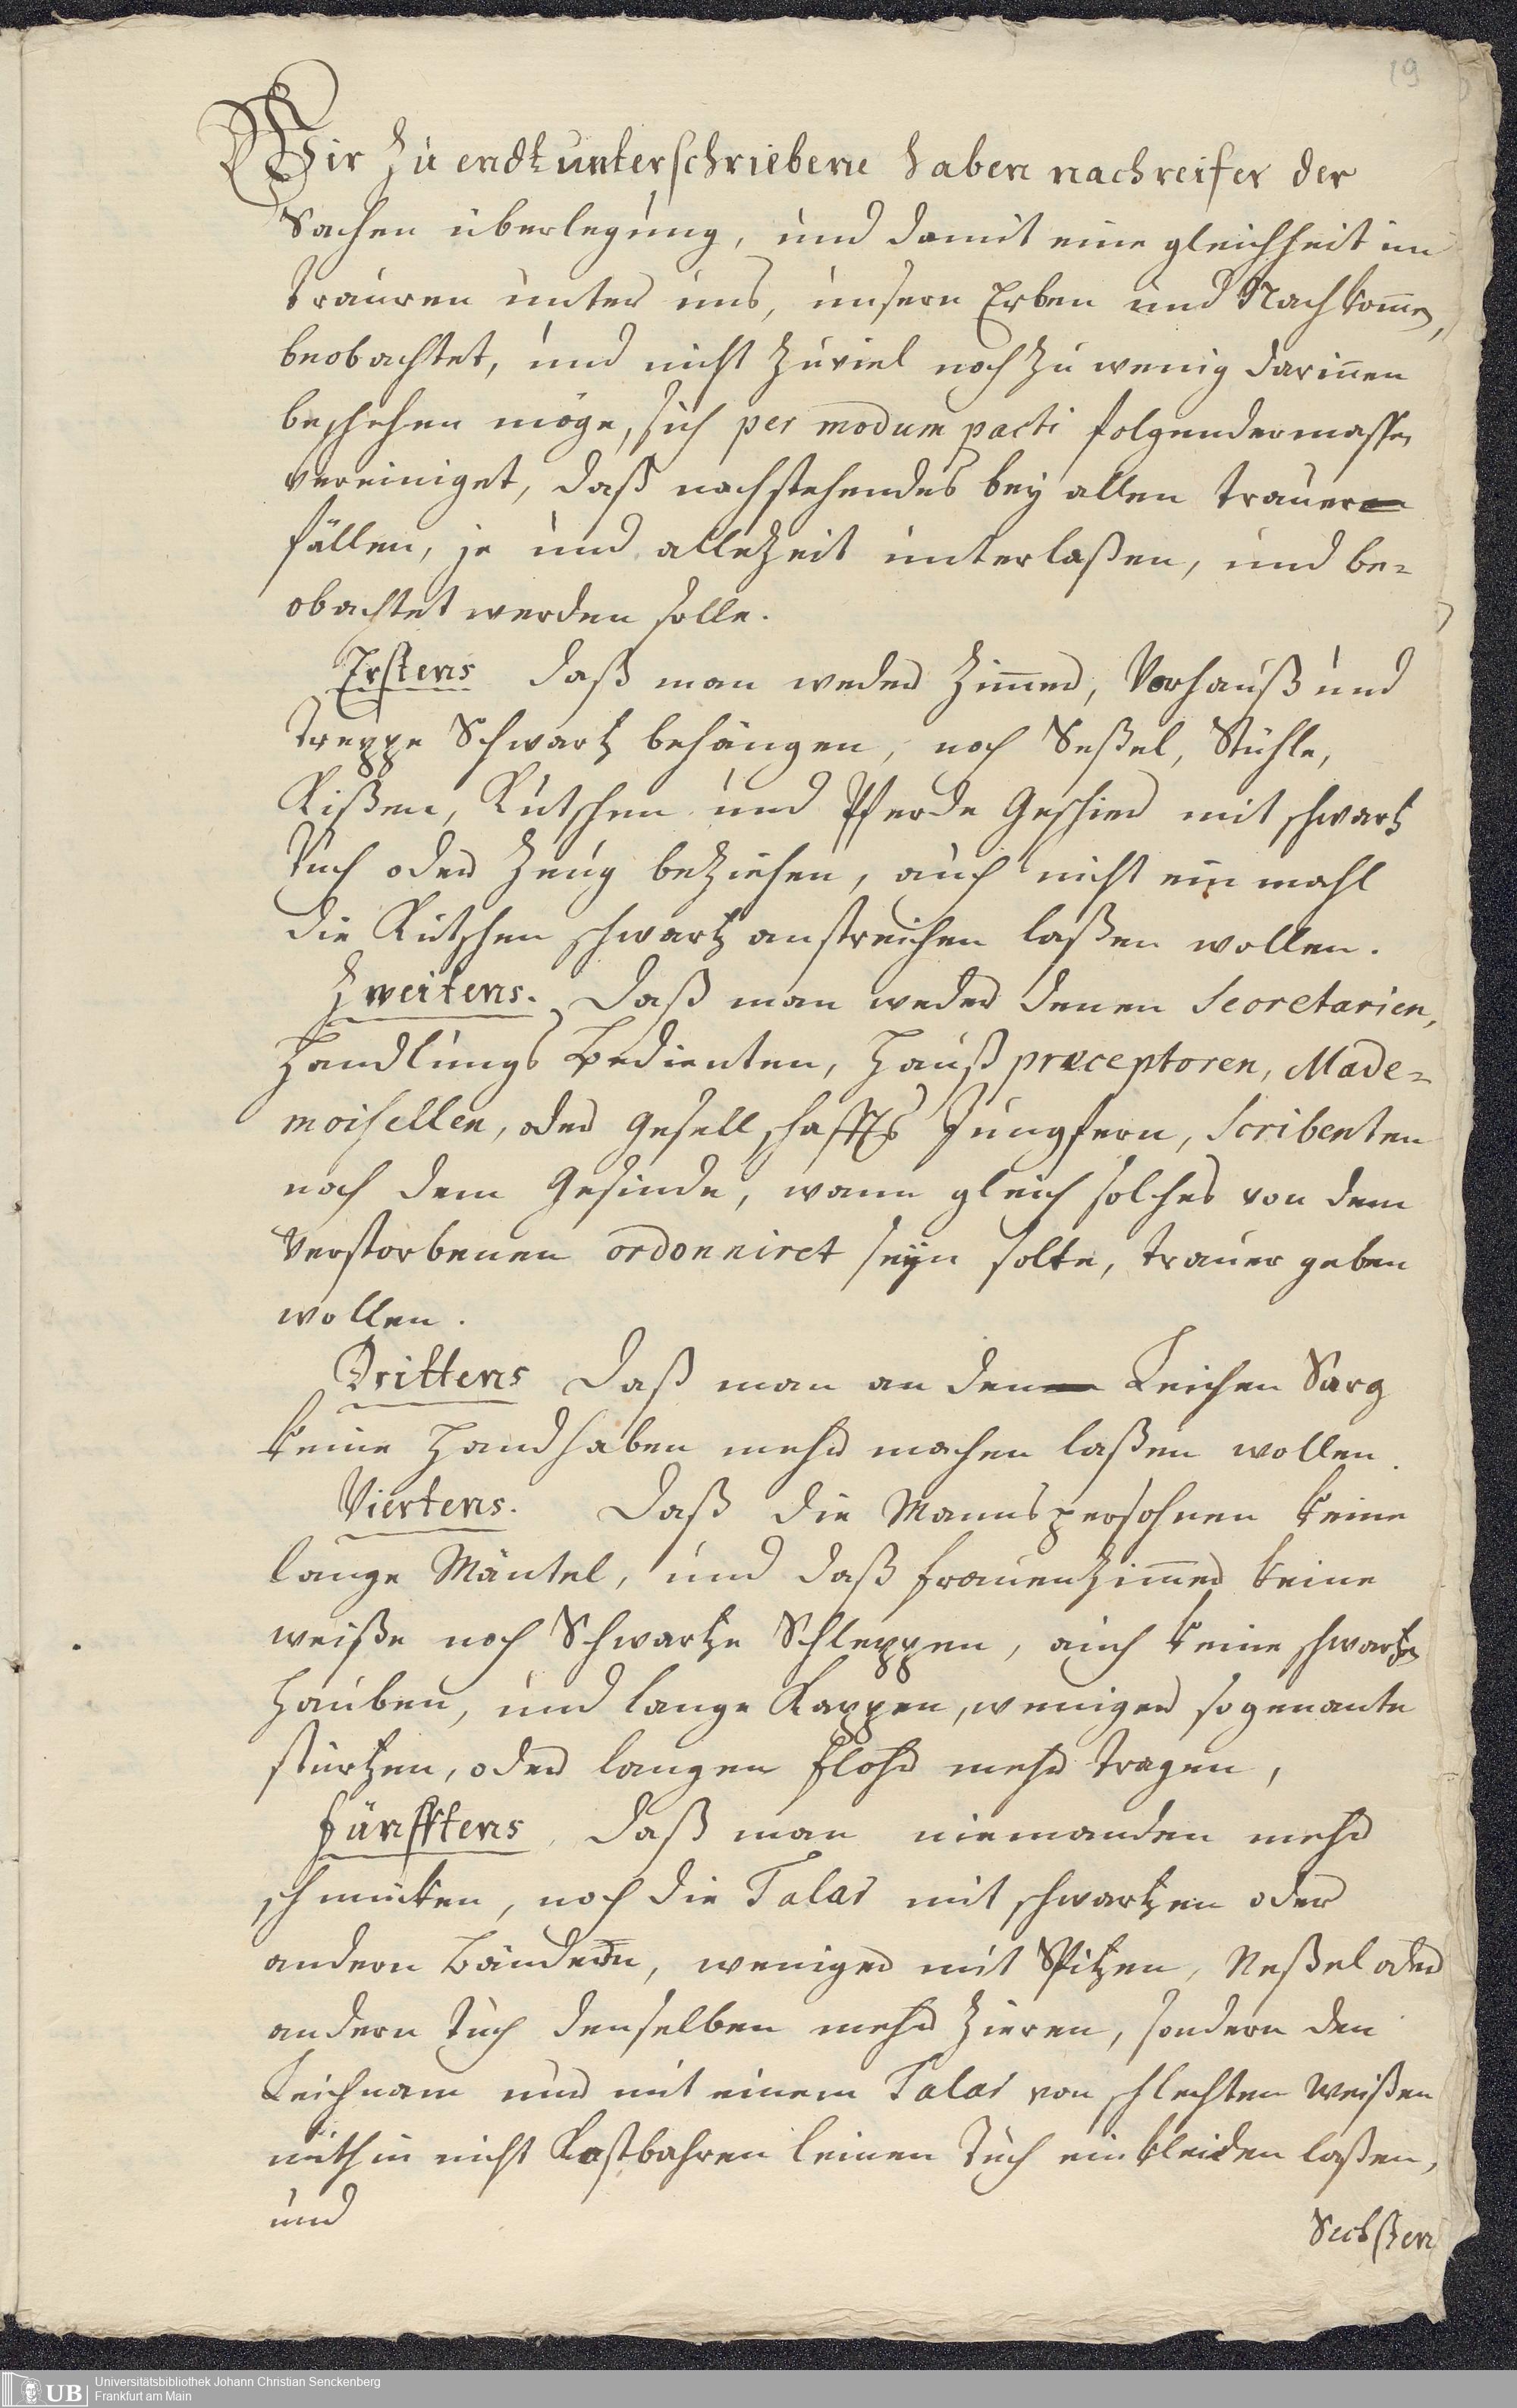 19
Wir zu endt unterschriebene haben nach reifer der
Sachen überlegung, und damit eine gleichheit im
trauren unter uns, unsern Erben und Nachkom̅en,
beobachtet, und nicht zuviel noch zu wenig darin̅en
beschehen möge, sich per modum pacti folgendermassen
vereiniget, daß nachstehendes bey allen trauer
fällen, je und allezeit unterlaßen, und be-
obachtet werden solle.
Erstens daß man weder Zim̅er, Vorhauß und
Treppe Schwartz behängen, noch Seßel, Stühle,
Kißen, Kutschen und Pferde Geschier mit schwartz
Tuch oder Zeug beziehen, auch nicht ein mahl
die Kutschen schwartz anstreichen laßen wollen.
Zweitens. Daß man weder denen Secretarien,
Handlungs Bedienten, Hauß præceptoren, Made-
moisellen, oder Gesellschaffts Jungfern, Scribenten
noch dem Gesinde, wann gleich solches von dem
Verstorbenen ordonniret seyn solte, trauer geben
wollen.
Drittens Daß man an den Leichen Sarg
keine Handhaben mehr machen laßen wollen.
Viertens. Daß die Mannspersohnen keine
lange Mäntel, und daß frauenzim̅er keine
weiße noch Schwartze Schleppen, auch keine schwartze
Hauben, und lange Kappen, weniger sogenante
stürtzen, oder langen flohr mehr tragen,
fünfftens Daß man niemanden mehr
schmücken, noch die Talar mit schwartzen oder
andern Bändern, weniger mit Spitzen, Neßel oder
andern Tuch denselben mehr zieren, sondern den
Leichnam nur mit einem Talar von schlechten weißen
mithin nicht Kostbahren leinen Tuch einkleiden laßen,
und
Sechsten
UB Universitätsbibliothek Johann Christian Senckenberg
Frankfurt am Main